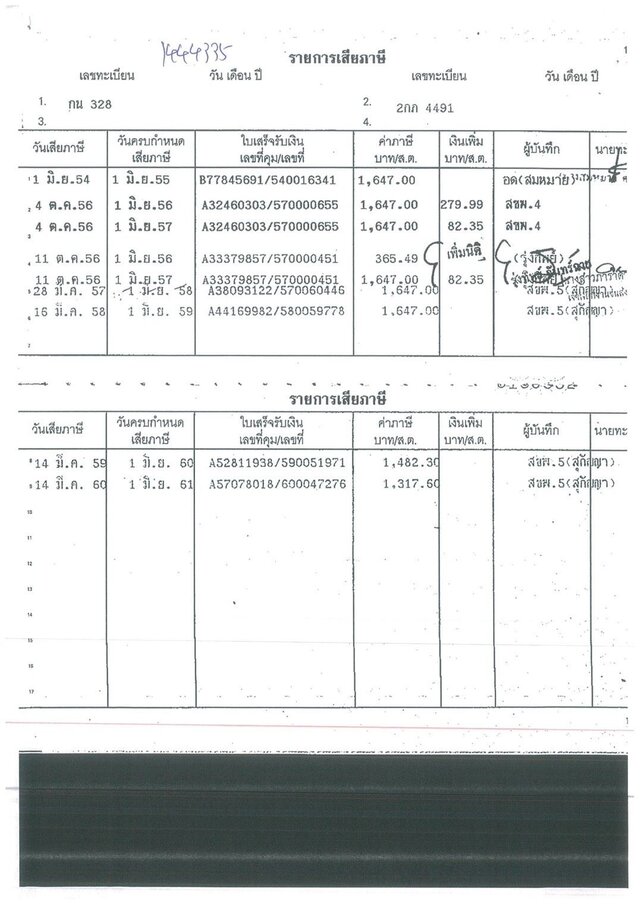 1444335
รายการเสียภาษี
เลขทะเบียน วัน เดือน ปี เลขทะเบียน วัน เดือน ปี
1. กน 328 2. 2กภ 4491
3. 4.
วันเสียภาษี วันครบกำหนดเสียภาษี ใบเสร็จรับเงิน เลขที่คุม/เลขที่ ค่าภาษี บาท/ส.ต. เงินเพิ่ม บาท/ส.ต. ผู้บันทึก นายทะ
1 มิ.ย.54 1 มิ.ย.55 B77845691/540016341 1,647.00 อด(สมหมาย)
2 4 ต.ค.56 1 มิ.ย.56 A32460303/570000655 1,647.00 279.99 สขพ.4
3 4 ต.ค.56 1 มิ.ย.57 A32460303/570000655 1,647.00 82.35 สขพ.4
11 ต.ค.56 1 มิ.ย.56 A33379857/570000451 365.49 เพิ่มนิติ (รุ่งทิพย์)
11 ต.ค.56 1 มิ.ย.57 A33379857/570000451 1,647.00 82.35
28 มี.ค. 57 1 มิ.ย. 58 A38093122/570060446 1,647.00 สขพ.5(สุกัญญา)
16 มี.ค. 58 1 มิ.ย. 59 A44169982/580059778 1,647.00 สขพ.5(สุกัญญา)
รายการเสียภาษี
วันเสียภาษี วันครบกำหนดเสียภาษี ใบเสร็จรับเงิน เลขที่คุม/เลขที่ ค่าภาษี บาท/ส.ต. เงินเพิ่ม บาท/ส.ต. ผู้บันทึก นายทะ
14 มี.ค. 59 1 มิ.ย. 60 A52811938/590051971 1,482.30 สขพ.5(สุกัญญา)
14 มี.ค. 60 1 มิ.ย. 61 A57078018/600047276 1,317.60 สขพ.5(สุกัญญา)
10
11
12
13
14
15
16
17